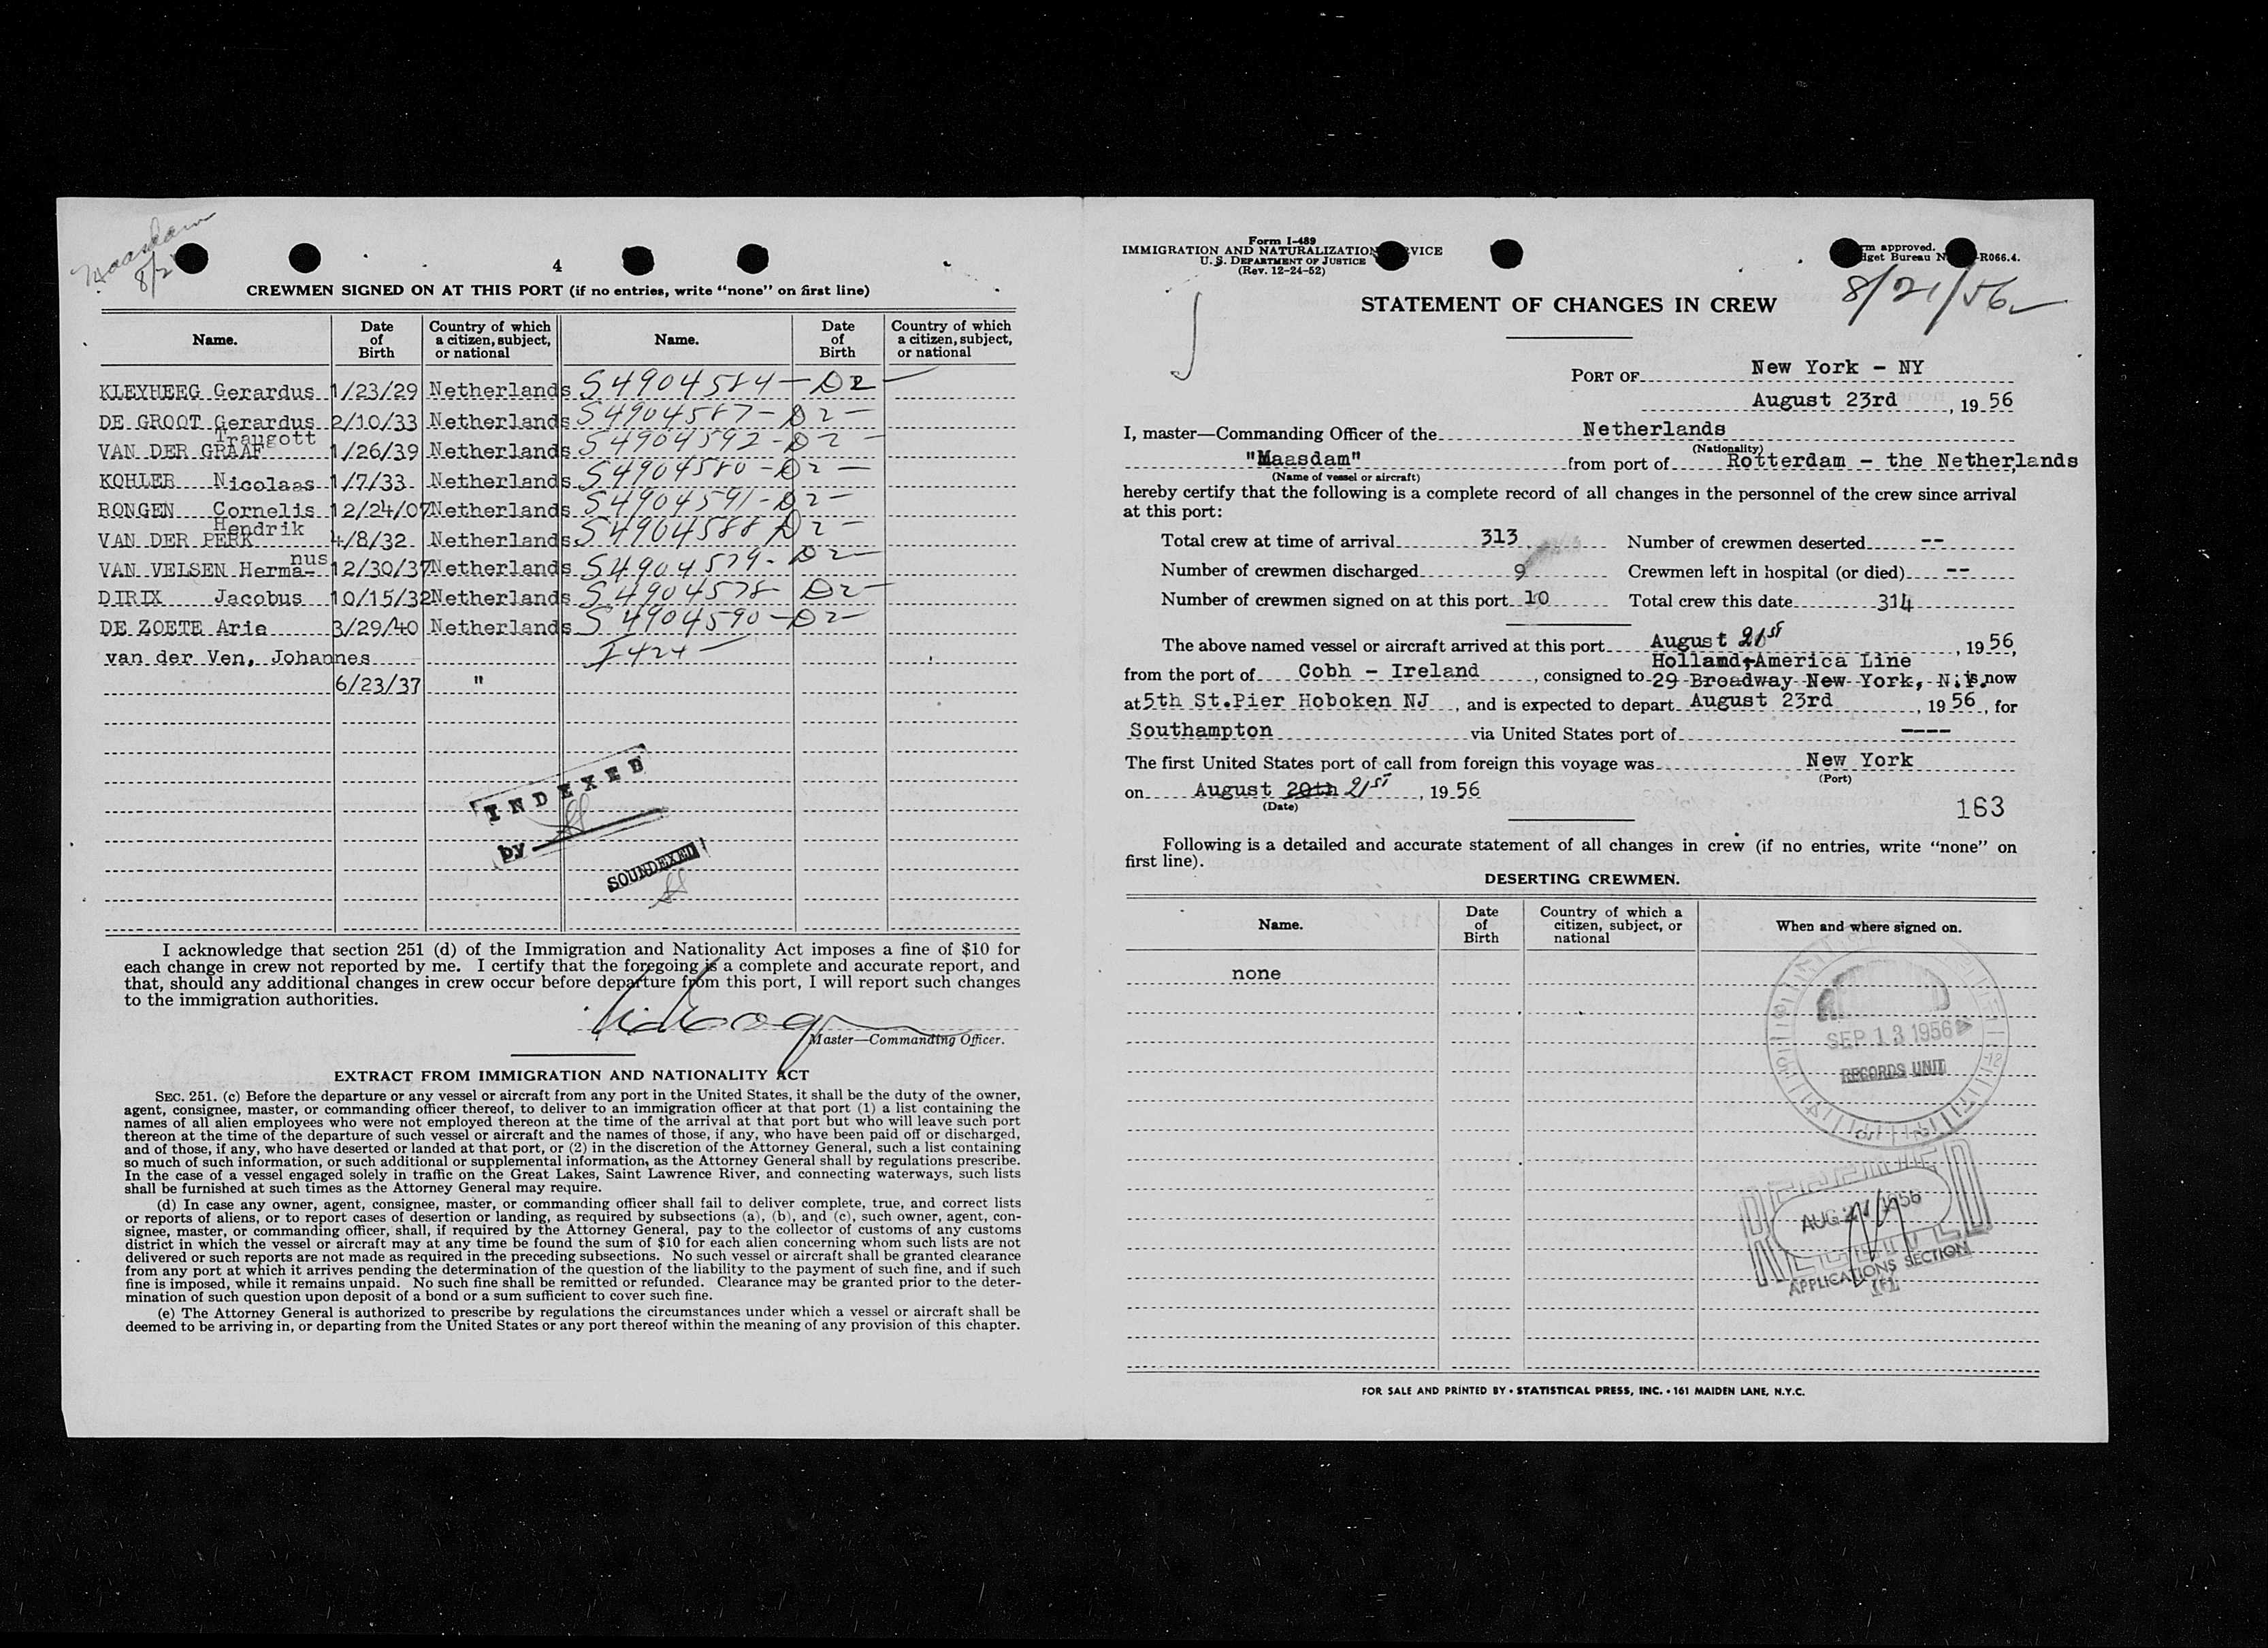 Maasdam
8/2
4
CREWMEN SIGNED ON AT THIS PORT (if no entries, write "none" on first line)
Name. Date of Birth Country of which a citizen, subject, or national Name. Date of Birth Country of which a citizen, subject, or national
KLEYHEEG Gerardus 1/23/29 Netherlands S4904584-D2-
DE GROOT Gerardus 2/10/33 Netherlands S4904587-D2-
VAN DER GRAAF Traugott 1/26/39 Netherlands S4904592-D2-
KOHLER Nicolaas 1/7/33 Netherlands S4904580-D2-
RONGEN Cornelis 12/24/07 Netherlands S4904591-D2-
VAN DER PERK Hendrik 4/8/32 Netherlands S4904588 D2-
VAN VELSEN Herma-nus 12/30/37 Netherlands S4904579-D2-
DIRIX Jacobus 10/15/32 Netherlands S4904578 D2-
DE ZOETE Arie 3/29/40 Netherlands S4904590-D2-
van der Ven, Johannes I424-
6/23/37 "
INDEXED
by
SOUNDEXED
I acknowledge that section 251 (d) of the Immigration and Nationality Act imposes a fine of $10 for
each change in crew not reported by me. I certify that the foregoing is a complete and accurate report, and
that, should any additional changes in crew occur before departure from this port, I will report such changes
to the immigration authorities.
Master—Commanding Officer.
EXTRACT FROM IMMIGRATION AND NATIONALITY ACT
SEC. 251. (c) Before the departure or any vessel or aircraft from any port in the United States, it shall be the duty of the owner,
agent, consignee, master, or commanding officer thereof, to deliver to an immigration officer at that port (1) a list containing the
names of all alien employees who were not employed thereon at the time of the arrival at that port but who will leave such port
thereon at the time of the departure of such vessel or aircraft and the names of those, if any, who have been paid off or discharged,
and of those, if any, who have deserted or landed at that port, or (2) in the discretion of the Attorney General, such a list containing
so much of such information, or such additional or supplemental information, as the Attorney General shall by regulations prescribe.
In the case of a vessel engaged solely in traffic on the Great Lakes, Saint Lawrence River, and connecting waterways, such lists
shall be furnished at such times as the Attorney General may require.
(d) In case any owner, agent, consignee, master, or commanding officer shall fail to deliver complete, true, and correct lists
or reports of aliens, or to report cases of desertion or landing, as required by subsections (a), (b), and (c), such owner, agent, con-
signee, master, or commanding officer, shall, if required by the Attorney General, pay to the collector of customs of any customs
district in which the vessel or aircraft may at any time be found the sum of $10 for each alien concerning whom such lists are not
delivered or such reports are not made as required in the preceding subsections. No such vessel or aircraft shall be granted clearance
from any port at which it arrives pending the determination of the question of the liability to the payment of such fine, and if such
fine is imposed, while it remains unpaid. No such fine shall be remitted or refunded. Clearance may be granted prior to the deter-
mination of such question upon deposit of a bond or a sum sufficient to cover such fine.
(e) The Attorney General is authorized to prescribe by regulations the circumstances under which a vessel or aircraft shall be
deemed to be arriving in, or departing from the United States or any port thereof within the meaning of any provision of this chapter.
Form I-489
IMMIGRATION AND NATURALIZATION VICE
U. S. DEPARTMENT OF JUSTICE
(Rev. 12-24-52)
rm approved.
dget Bureau N -R066.4.
8/21/56
STATEMENT OF CHANGES IN CREW
PORT OF New York - NY
August 23rd, 19 56
I, master—Commanding Officer of the Netherlands
(Nationality)
"Maasdam" from port of Rotterdam - the Netherlands
(Name of vessel or aircraft)
hereby certify that the following is a complete record of all changes in the personnel of the crew since arrival
at this port:
Total crew at time of arrival 313 Number of crewmen deserted --
Number of crewmen discharged 9 Crewmen left in hospital (or died) --
Number of crewmen signed on at this port 10 Total crew this date 314
The above named vessel or aircraft arrived at this port August 21st, 19 56,
from the port of Cobh - Ireland, consigned to Holland-America Line 29 Broadway New York, N.Y. is now
at 5th St.Pier Hoboken NJ, and is expected to depart August 23rd, 19 56, for
Southampton via United States port of ----
The first United States port of call from foreign this voyage was New York
(Port)
on August 20th 21st, 19 56
(Date)
163
Following is a detailed and accurate statement of all changes in crew (if no entries, write "none" on
first line).
DESERTING CREWMEN.
Name. Date of Birth Country of which a citizen, subject, or national When and where signed on.
none
SEP 13 1956
RECORDS UNIT
RECEIVED
AUG 1956
APPLICATIONS SECTION
FOR SALE AND PRINTED BY • STATISTICAL PRESS, INC. • 161 MAIDEN LANE, N.Y.C.